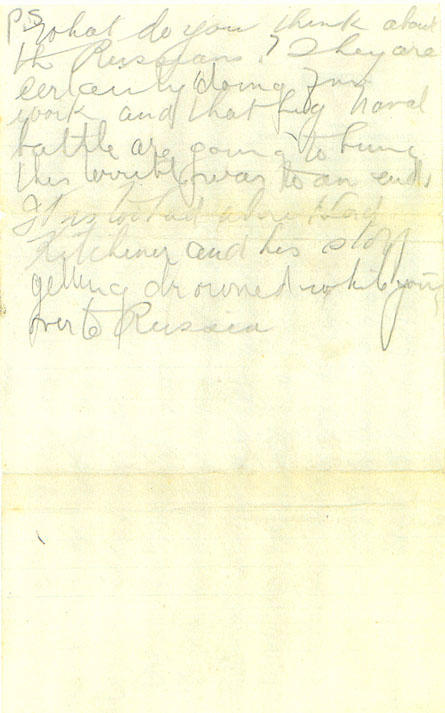 P.S. what do you think about
the Russians? They are
certainly doing fine
work and that big naval
battle are going to bring
this terrible war to an end.
It is too bad about Lord
Kitchener and his staff
getting drowned while going
over to Russia